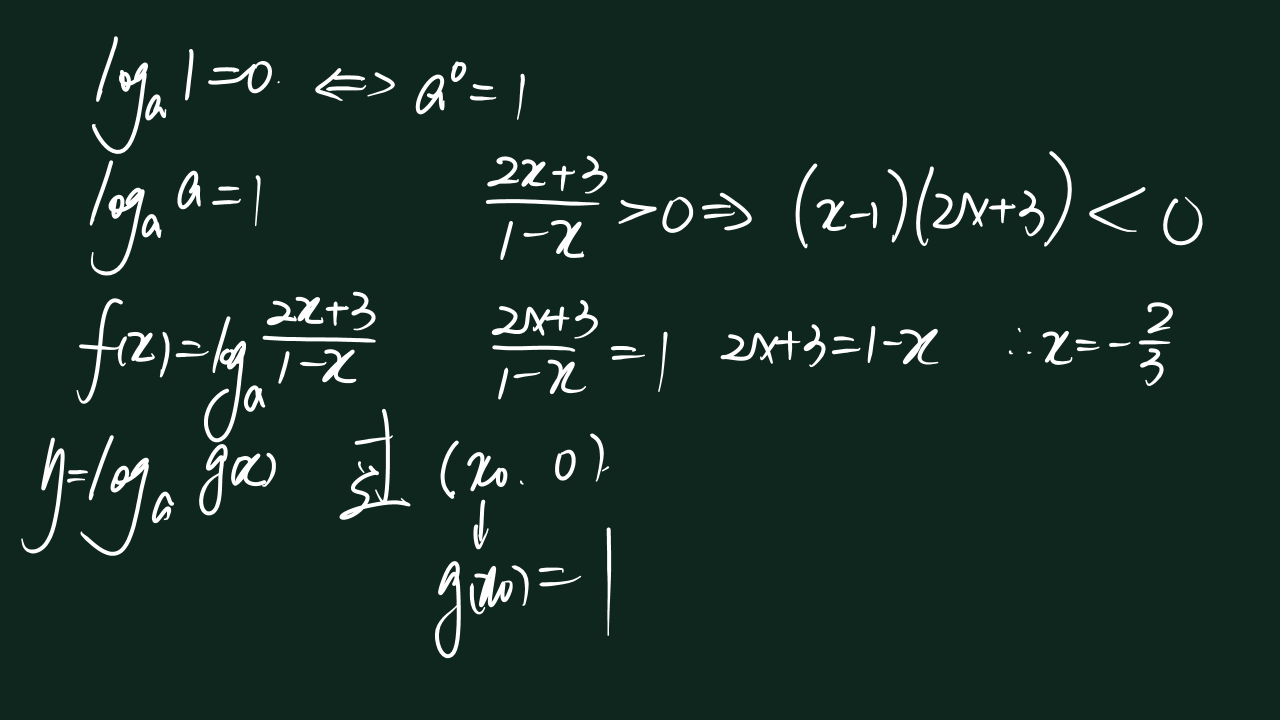 log_a 1 = 0. ⟺ a^0 = 1
log_a a = 1
(2x+3)/(1-x) > 0 ⇒ (x-1)(2x+3) < 0
f(x) = log_a (2x+3)/(1-x)
(2x+3)/(1-x) = 1 2x+3 = 1-x ∴ x = -2/3
y = log_a g(x) (x₀, 0)
↓
g(x₀) = 1